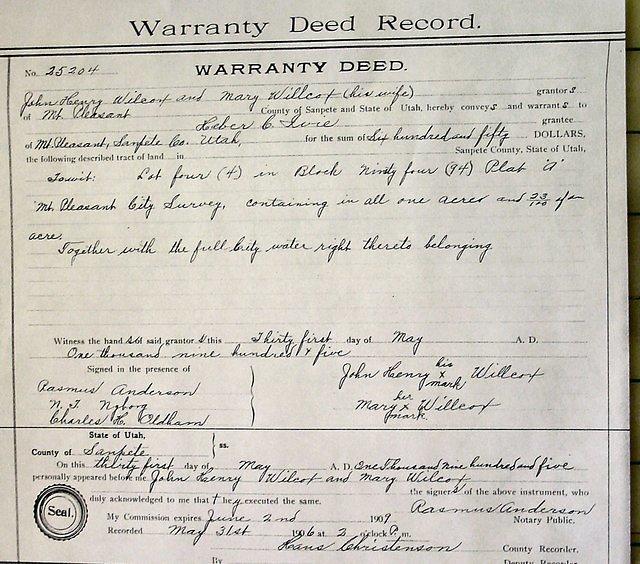 Warranty Deed Record.
No. 25204 WARRANTY DEED.
John Henry Wilcox and Mary Willcox (his wife) grantors
of Mt. Pleasant County of Sanpete and State of Utah, hereby conveys and warrants to
Heber C. Ivie grantee
of Mt. Pleasant, Sanpete Co. Utah, for the sum of Six hundred and fifty DOLLARS,
the following described tract of land in Sanpete County, State of Utah,
Towit: Lot four (4) in Block Ninty four (94) Plat "A"
Mt. Pleasant City Survey, containing in all one acres and 23/100 of an
acre.
Together with the full City water right thereto belonging
Witness the hand s of said grantor s this Thirty first day of May A. D.
One thousand nine hundred & five
Signed in the presence of
John Henry his x mark Willcox
Rasmus Anderson
Mary her x mark Willcox
Charles H. Oldham
State of Utah,
County of Sanpete ss.
On this thirty first day of May A. D. One Thousand nine hundred and five
personally appeared before me John Henry Wilcox and Mary Wilcox
the signers of the above instrument, who
duly acknowledged to me that they executed the same.
Rasmus Anderson
Seal.
My Commission expires June 2nd 1909 Notary Public.
Recorded May 31st 1906 at 2 o'clock P. m.
Hans Christenson County Recorder.
By Deputy Recorder